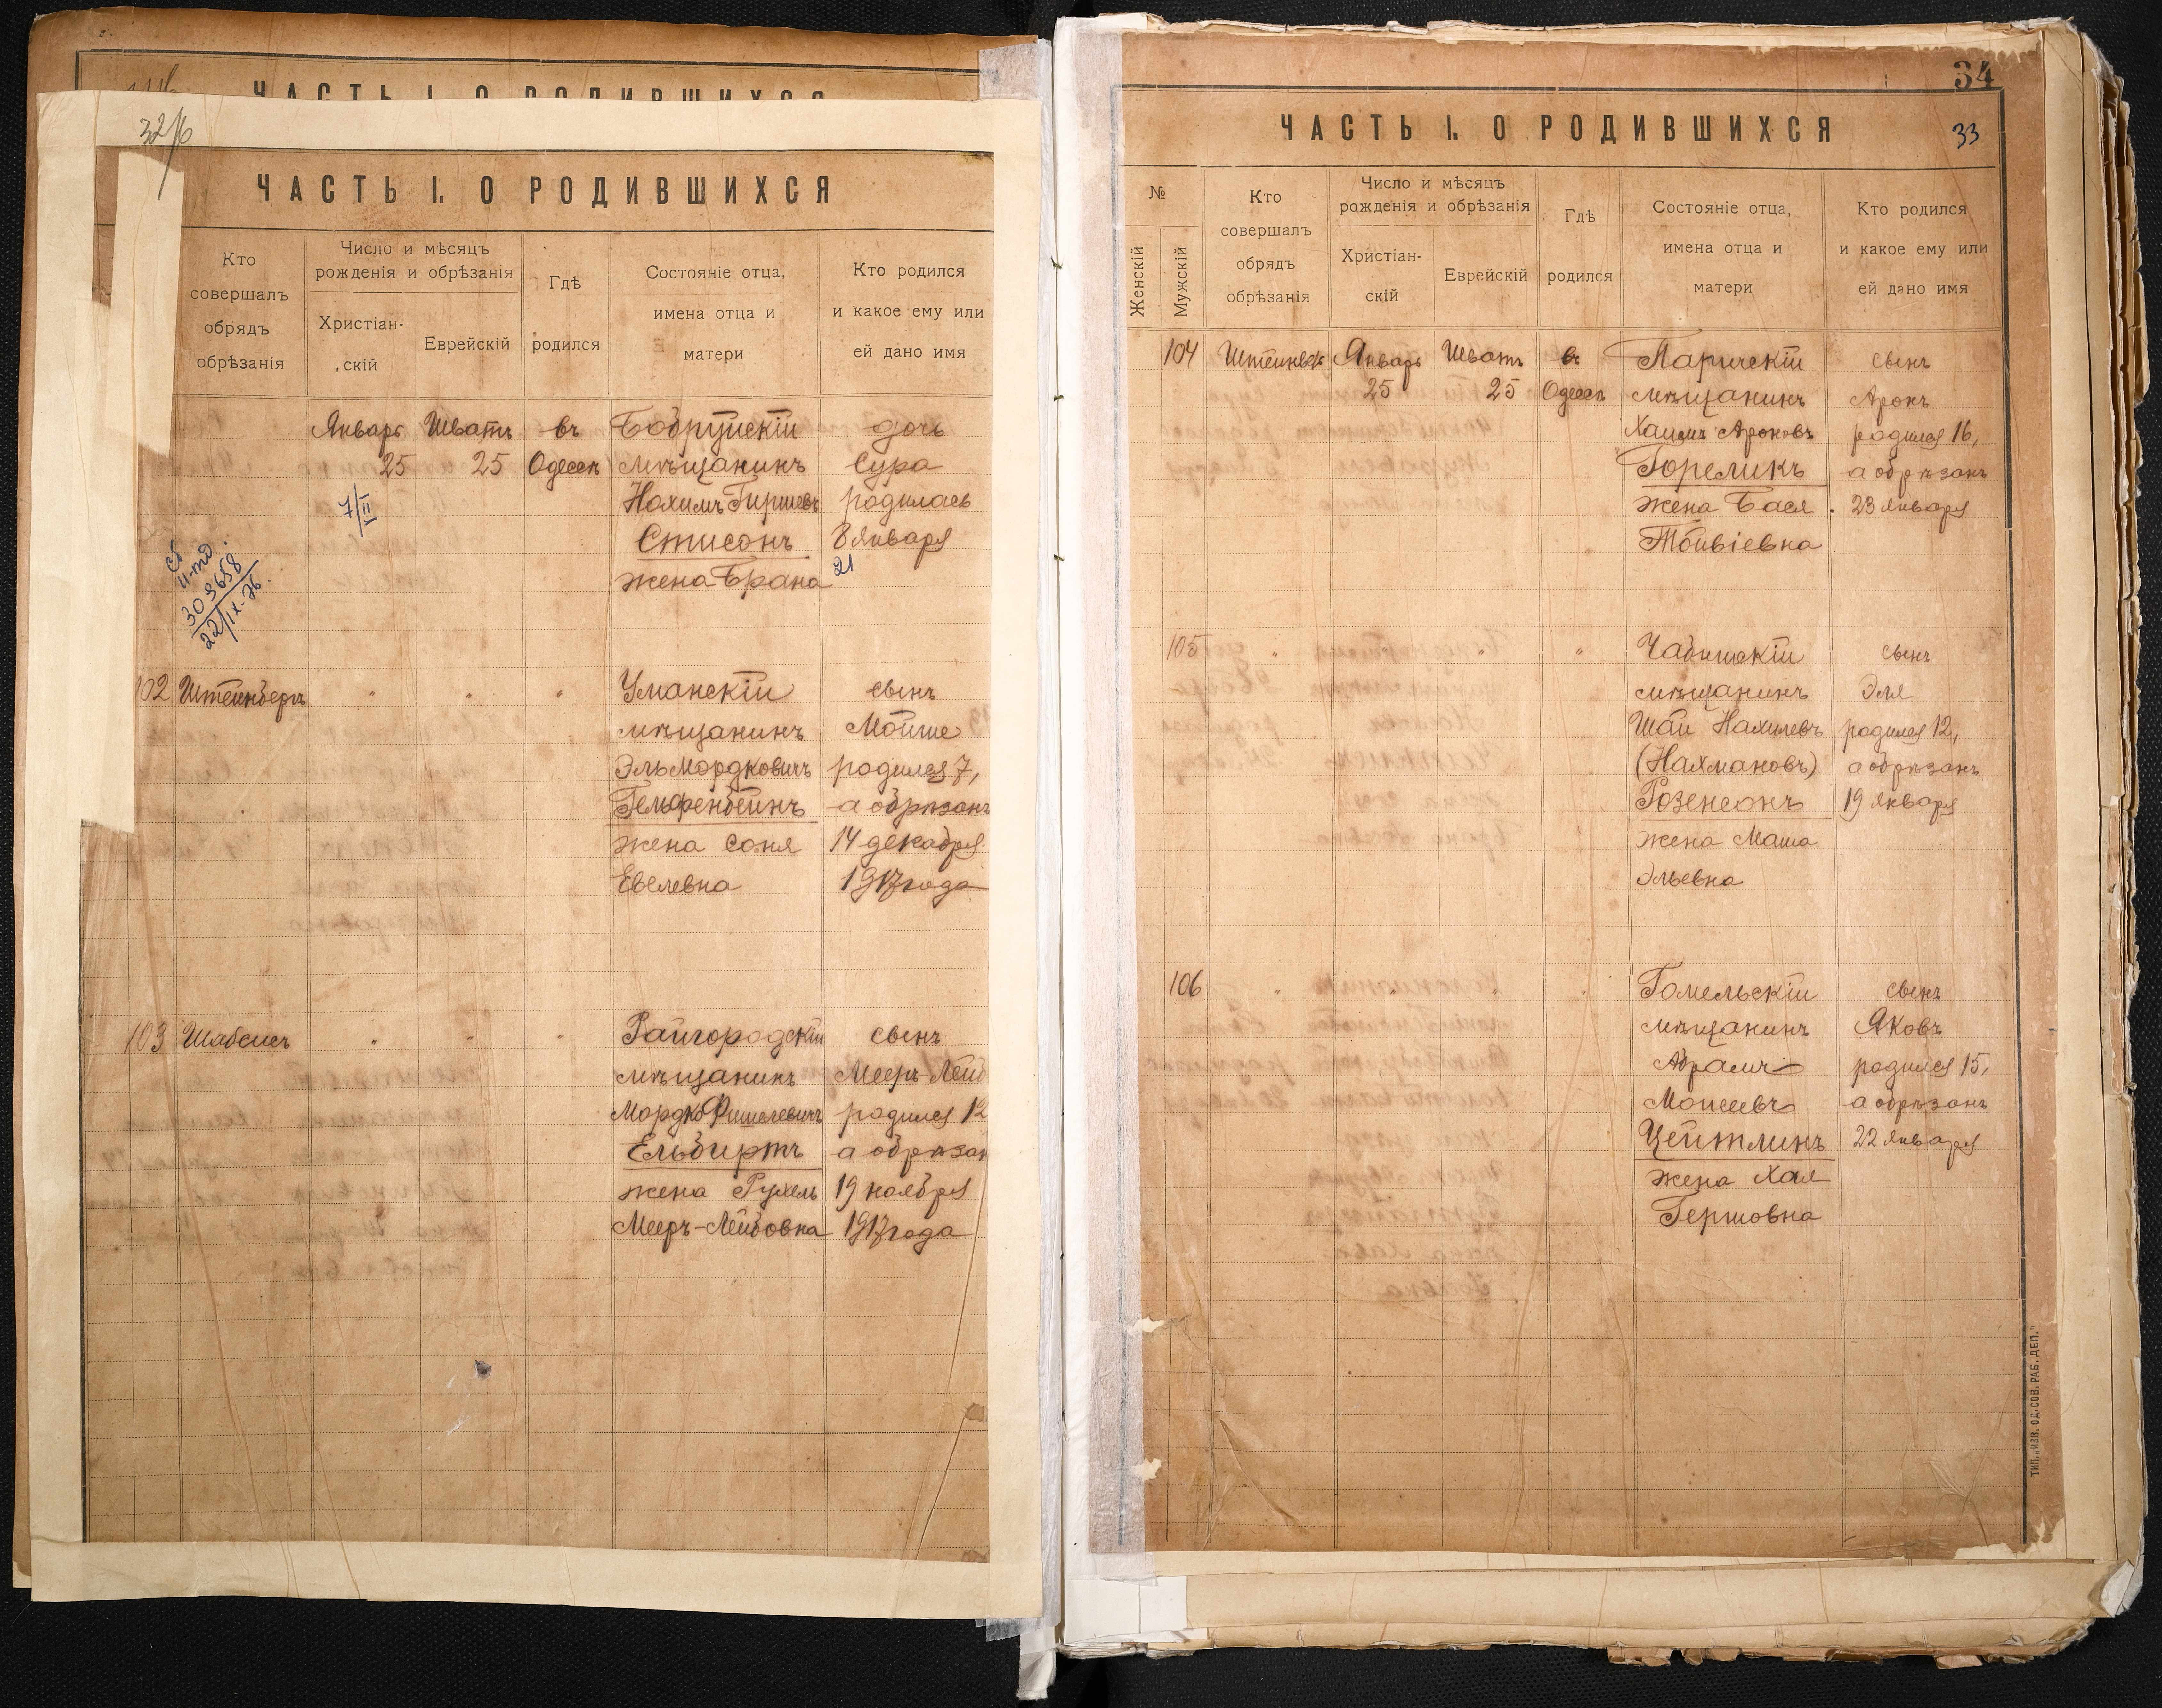 ЧАСТЬ I. О РОДИВШИХСЯ
32/6
ЧАСТЬ I. О РОДИВШИХСЯ
Кто
совершалъ
обрядъ
обрѣзанія
Число и мѣсяцъ
рожденія и обрѣзанія
Христіан-
скій
Еврейскій
Гдѣ
родился
Состояніе отца,
имена отца и
матери
Кто родился
и какое ему или
ей дано имя
Январь Шватъ въ Бобруйскій дочь
25 25 Одессѣ мѣщанинъ Сура
7/II Нохимъ Гиршевъ родилась
Стисонъ 8 Января
21
жена Брана
303658
22/IX-26.
102 Штейнбергъ " " " Уманскій сынъ
мѣщанинъ Мойше
Эль Мордковичъ родился 7,
Гельфенбейнъ а обрѣзанъ
жена Соня 14 декабря
Евелевна 1917 года
103 Шабсисъ " " " Райгородскій сынъ
мѣщанинъ Мееръ-Лейб
Мордко Фишелевичъ родился 12
Ельбиртъ а обрѣзан
жена Рухель 19 ноября
Мееръ-Лейбовна 1917 года
34
ЧАСТЬ I. О РОДИВШИХСЯ 33
№
Женскій
Мужскій
Кто
совершалъ
обрядъ
обрѣзанія
Число и мѣсяцъ
рожденія и обрѣзанія
Христіан-
скій
Еврейскій
Гдѣ
родился
Состояніе отца,
имена отца и
матери
Кто родился
и какое ему или
ей дано имя
104 Январь Шватъ въ Паричскій сынъ
25 25 Одессѣ мѣщанинъ Аронъ
Хаимъ Ароновъ родился 16,
Гореликъ а обрѣзанъ
жена Бася 23 января
Тойвіевна
105 " " " сынъ
мѣщанинъ Эля
Шай Нахимевъ родился 12,
(Нахмановъ) а обрѣзанъ
Розенсонъ 19 января
жена Маша
Эльевна
106 " " " " Гомельскій сынъ
мѣщанинъ Яковъ
Абрамъ родился 15,
Моисеевъ а обрѣзанъ
Цейтлинъ 22 января
жена Хая
Гершовна
ТИП. „ИЗВ. ОД. СОВ. РАБ. ДЕП."